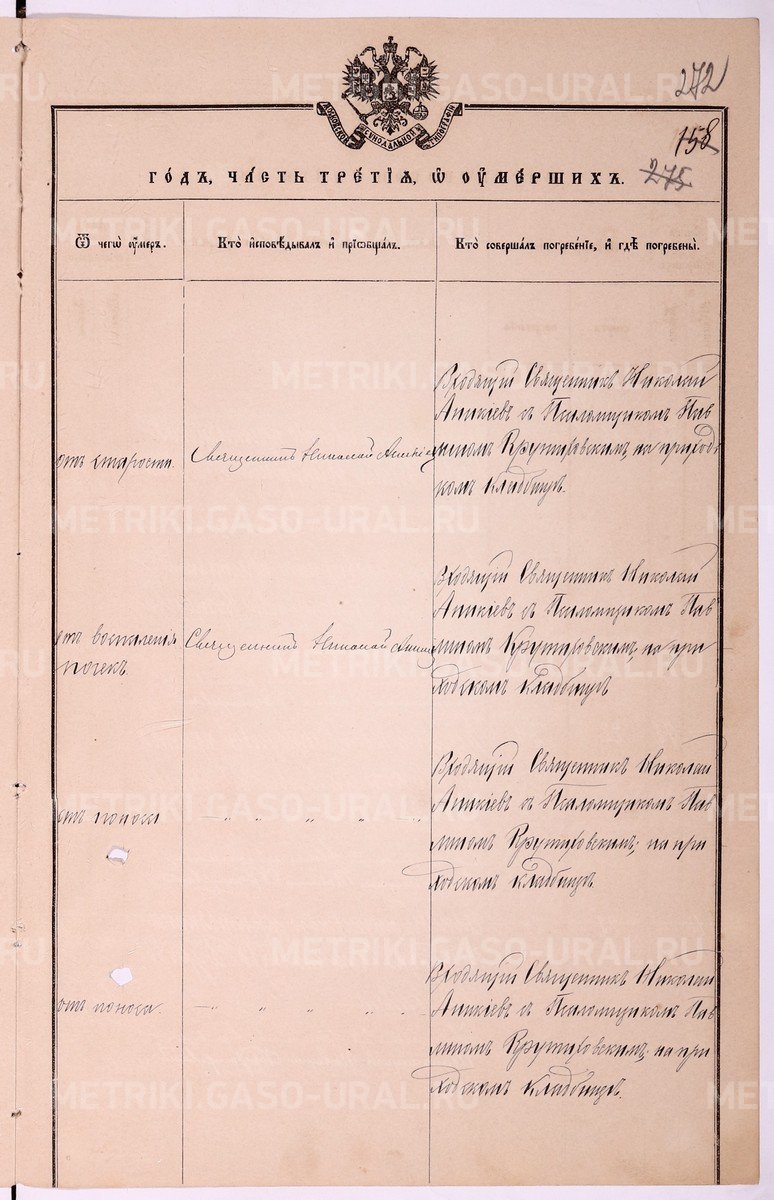 272
158
275
МОСКОВСКОЙ СѴНОДАЛЬНОЙ ТИПОГРАФІИ
ГОДЪ, ЧАСТЬ ТРЕТІЯ, Ѡ ОУМЕРШИХЪ.
Ѿ чегѡ оумеръ.
Кто исповѣдывалъ и прїобщалъ.
Кто совершалъ погребенїе, и гдѣ погребены.
отъ старости.
Священникъ Николай
Входящій Священникъ Николай
Аникіевъ съ Псаломщикомъ Пав
линомъ Крутиховскимъ, на приход
комъ кладбищѣ.
отъ воспаленія
почекъ.
Священникъ Николай
Входящій Священникъ Николай
Аникіевъ съ Псаломщикомъ Пав
линомъ Крутиховскимъ, на при
ходскомъ кладбищѣ
отъ поноса
— „ „ „ „ „
Входящій Священникъ Николай
Аникіевъ съ Псаломщикомъ Пав
линомъ Крутиховскимъ, на при
ходскомъ кладбищѣ.
отъ поноса.
— „ „ „ „ „
Входящій Священникъ Николай
Аникіевъ съ Псаломщикомъ Пав
линомъ Крутиховскимъ, на при
ходскомъ кладбищѣ.
METRIKI.GASO-URAL.RU